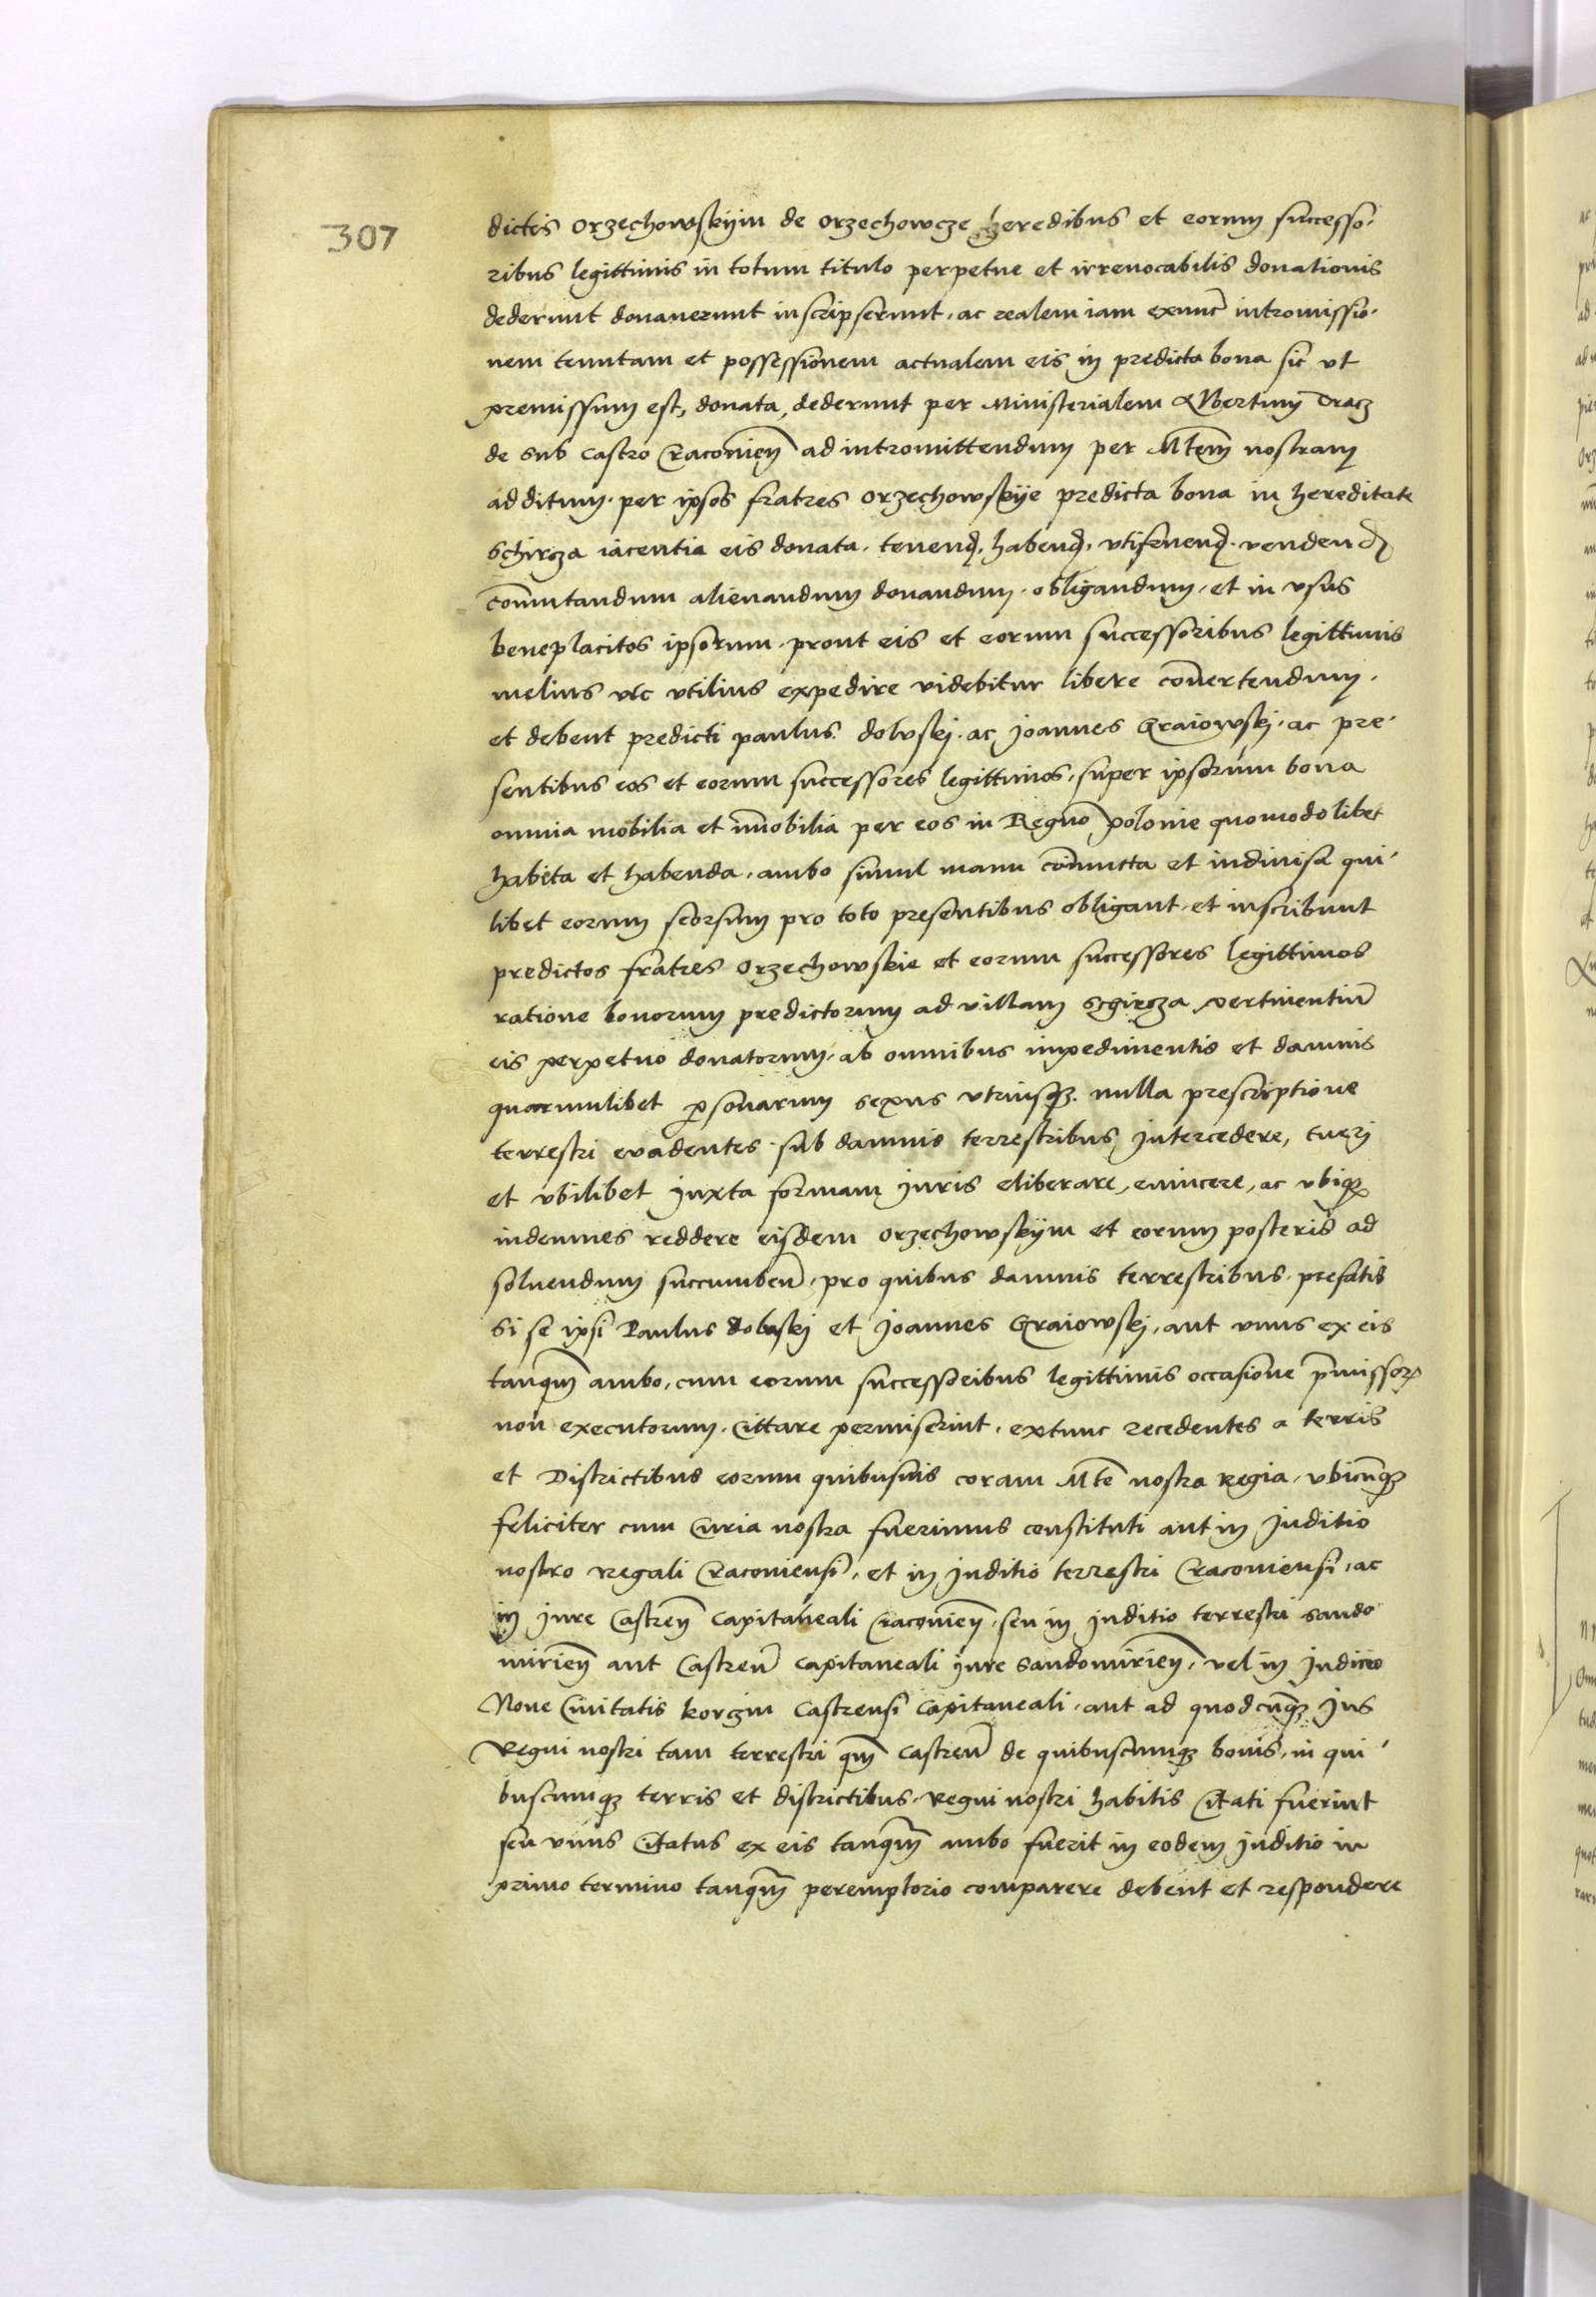 307
dictis Orzechowskijm de Orzechowcze heredibus et eorum successo-
ribus legittimis in totum titulo perpetue et irrevocabilis donationis
dederunt donaverunt inscripserunt. ac realem iam exnunc intromissio-
nem tenutam et possessionem actualem eis in predicta bona sic vt
premissum est, donata, dederunt per Ministerialem Albertum
de sub Castro Cracovien̄ ad intromittendum per Mtem̄ nostram
additum. per ipsos fratres Orzechowskije predicta bona in hereditate
Schircza iacentia eis donata. tenend. habend. vtifruend. vendend
com̄utandum alienandum donandum. obligandum. et in vsus
beneplacitos ipsorum. prout eis et eorum successoribus legittimis
melius vtilius expedire videbitur libere con̄vertendum.
et debent predicti paulus dolvskj. ac Joannes Graiowskj. ac pre-
sentibus eos et eorum successores legittimos, super ipsorum bona
omnia mobilia et im̄obilia per eos in Regno polonie quomodolibet
habita et habenda. ambo simul manu coniuncta et indivisa qui-
libet eorum seorsum pro toto presentibus obligant. et inscribunt
predictos fratres Orzechowskie et eorum successores legittimos
ratione bonorum predictorum ad villam Schircza pertinentiū
eis perpetuo donatorum. ab omnibus impedimentis et damnis
quarumlibet personarum sexus vtriusqȝ. nulla prescriptione
terrestri evadentes. sub damnis terrestribus Intercedere, tuerj
et vbilibet Juxta formam Juris eliberare, evincere, ac vbiqȝ
indemnes reddere eisdem Orzechowskijm et eorum posteris ad
solvendum succumben̄. pro quibus damnis terrestribus. prefatis
Si se ipsi Paulus dolvskj et Joannes Graiowskj, aut vnus ex eis
tanqm̄ ambo, cum eorum successoribus legittimis occasione p̄missorꝝ
non executorum. Cittare permiserint. extunc recedentes a terris
et Districtibus eorum quibusvis coram Mte nostra Regia. vbicunqȝ
feliciter cum Curia nostra fuerimus constituti aut in Juditio
nostro Regali Cracoviensi, et in Juditio terrestri Cracoviensi, ac
in Jure Castren̄ Capitaneali Cracovien̄. seu in Juditio terrestri Sando
mirien̄ aut Castren̄ Capitaneali Jure Sandomirien̄. vel in Judicio
Nove Civitatis korczin Castrensi Capitaneali. aut ad quodcunqȝ Jus
Regni nostri tam terrestri qm̄ Castren̄ de quibuscumqȝ bonis. in qui-
buscumqȝ terris et districtibus. Regni nostri habitis Citati fuerint
seu vnus Citatus ex eis tanqm̄ ambo fuerit in eodem Juditio in
primo termino tanqm̄ peremptorio comparere debent et respondere